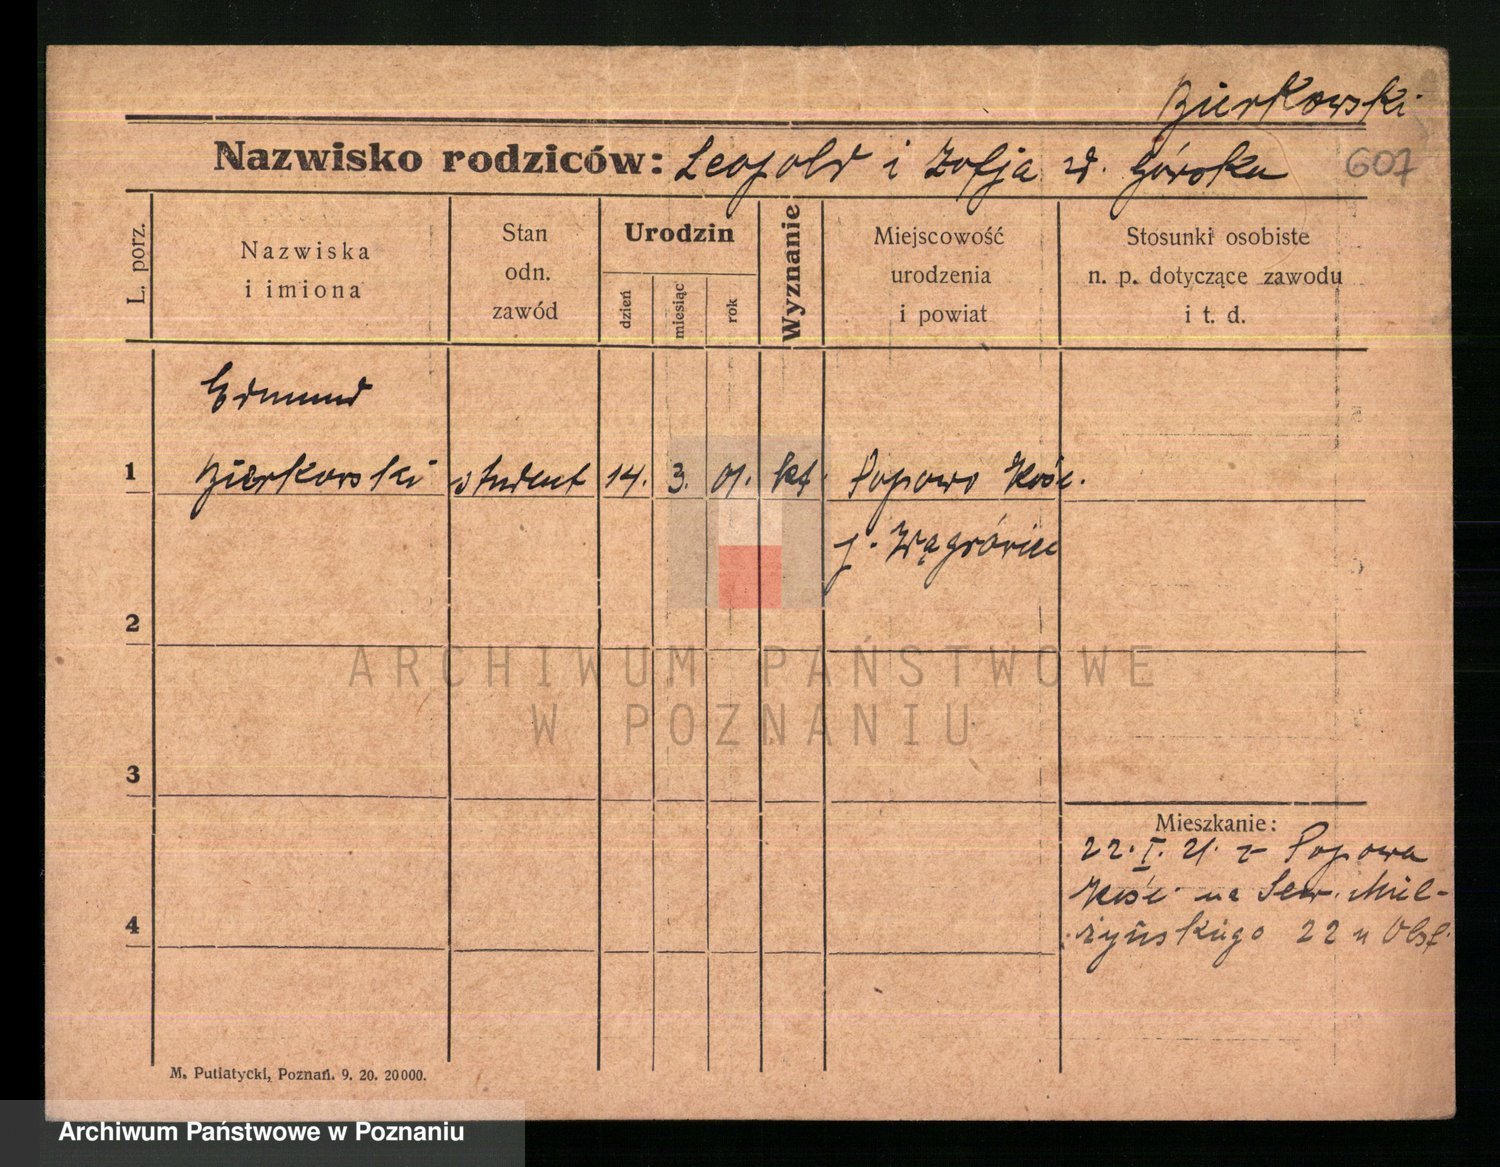 Bierkowski
Nazwisko rodziców: Leopold i Zofja d. Górska
607
L. porz.
Nazwiska
i imiona
Stan
odn.
zawód
Urodzin
dzień
miesiąc
rok
Wyznanie
Miejscowość
urodzenia
i powiat
Stosunki osobiste
n. p. dotyczące zawodu
i t. d.
Edmund
1 Bierkowski student 14. 3. 01. kt. Popowo Kośc.
p. Wągrówiec
2
ARCHIWUM PAŃSTWOWE
W POZNANIU
3
Mieszkanie:
22. I. 21. z Popowa
Kośc. na Sew. Miel-
4
żyńskiego 22 u Obst.
M. Putiatycki, Poznań. 9. 20. 20000.
Archiwum Państwowe w Poznaniu